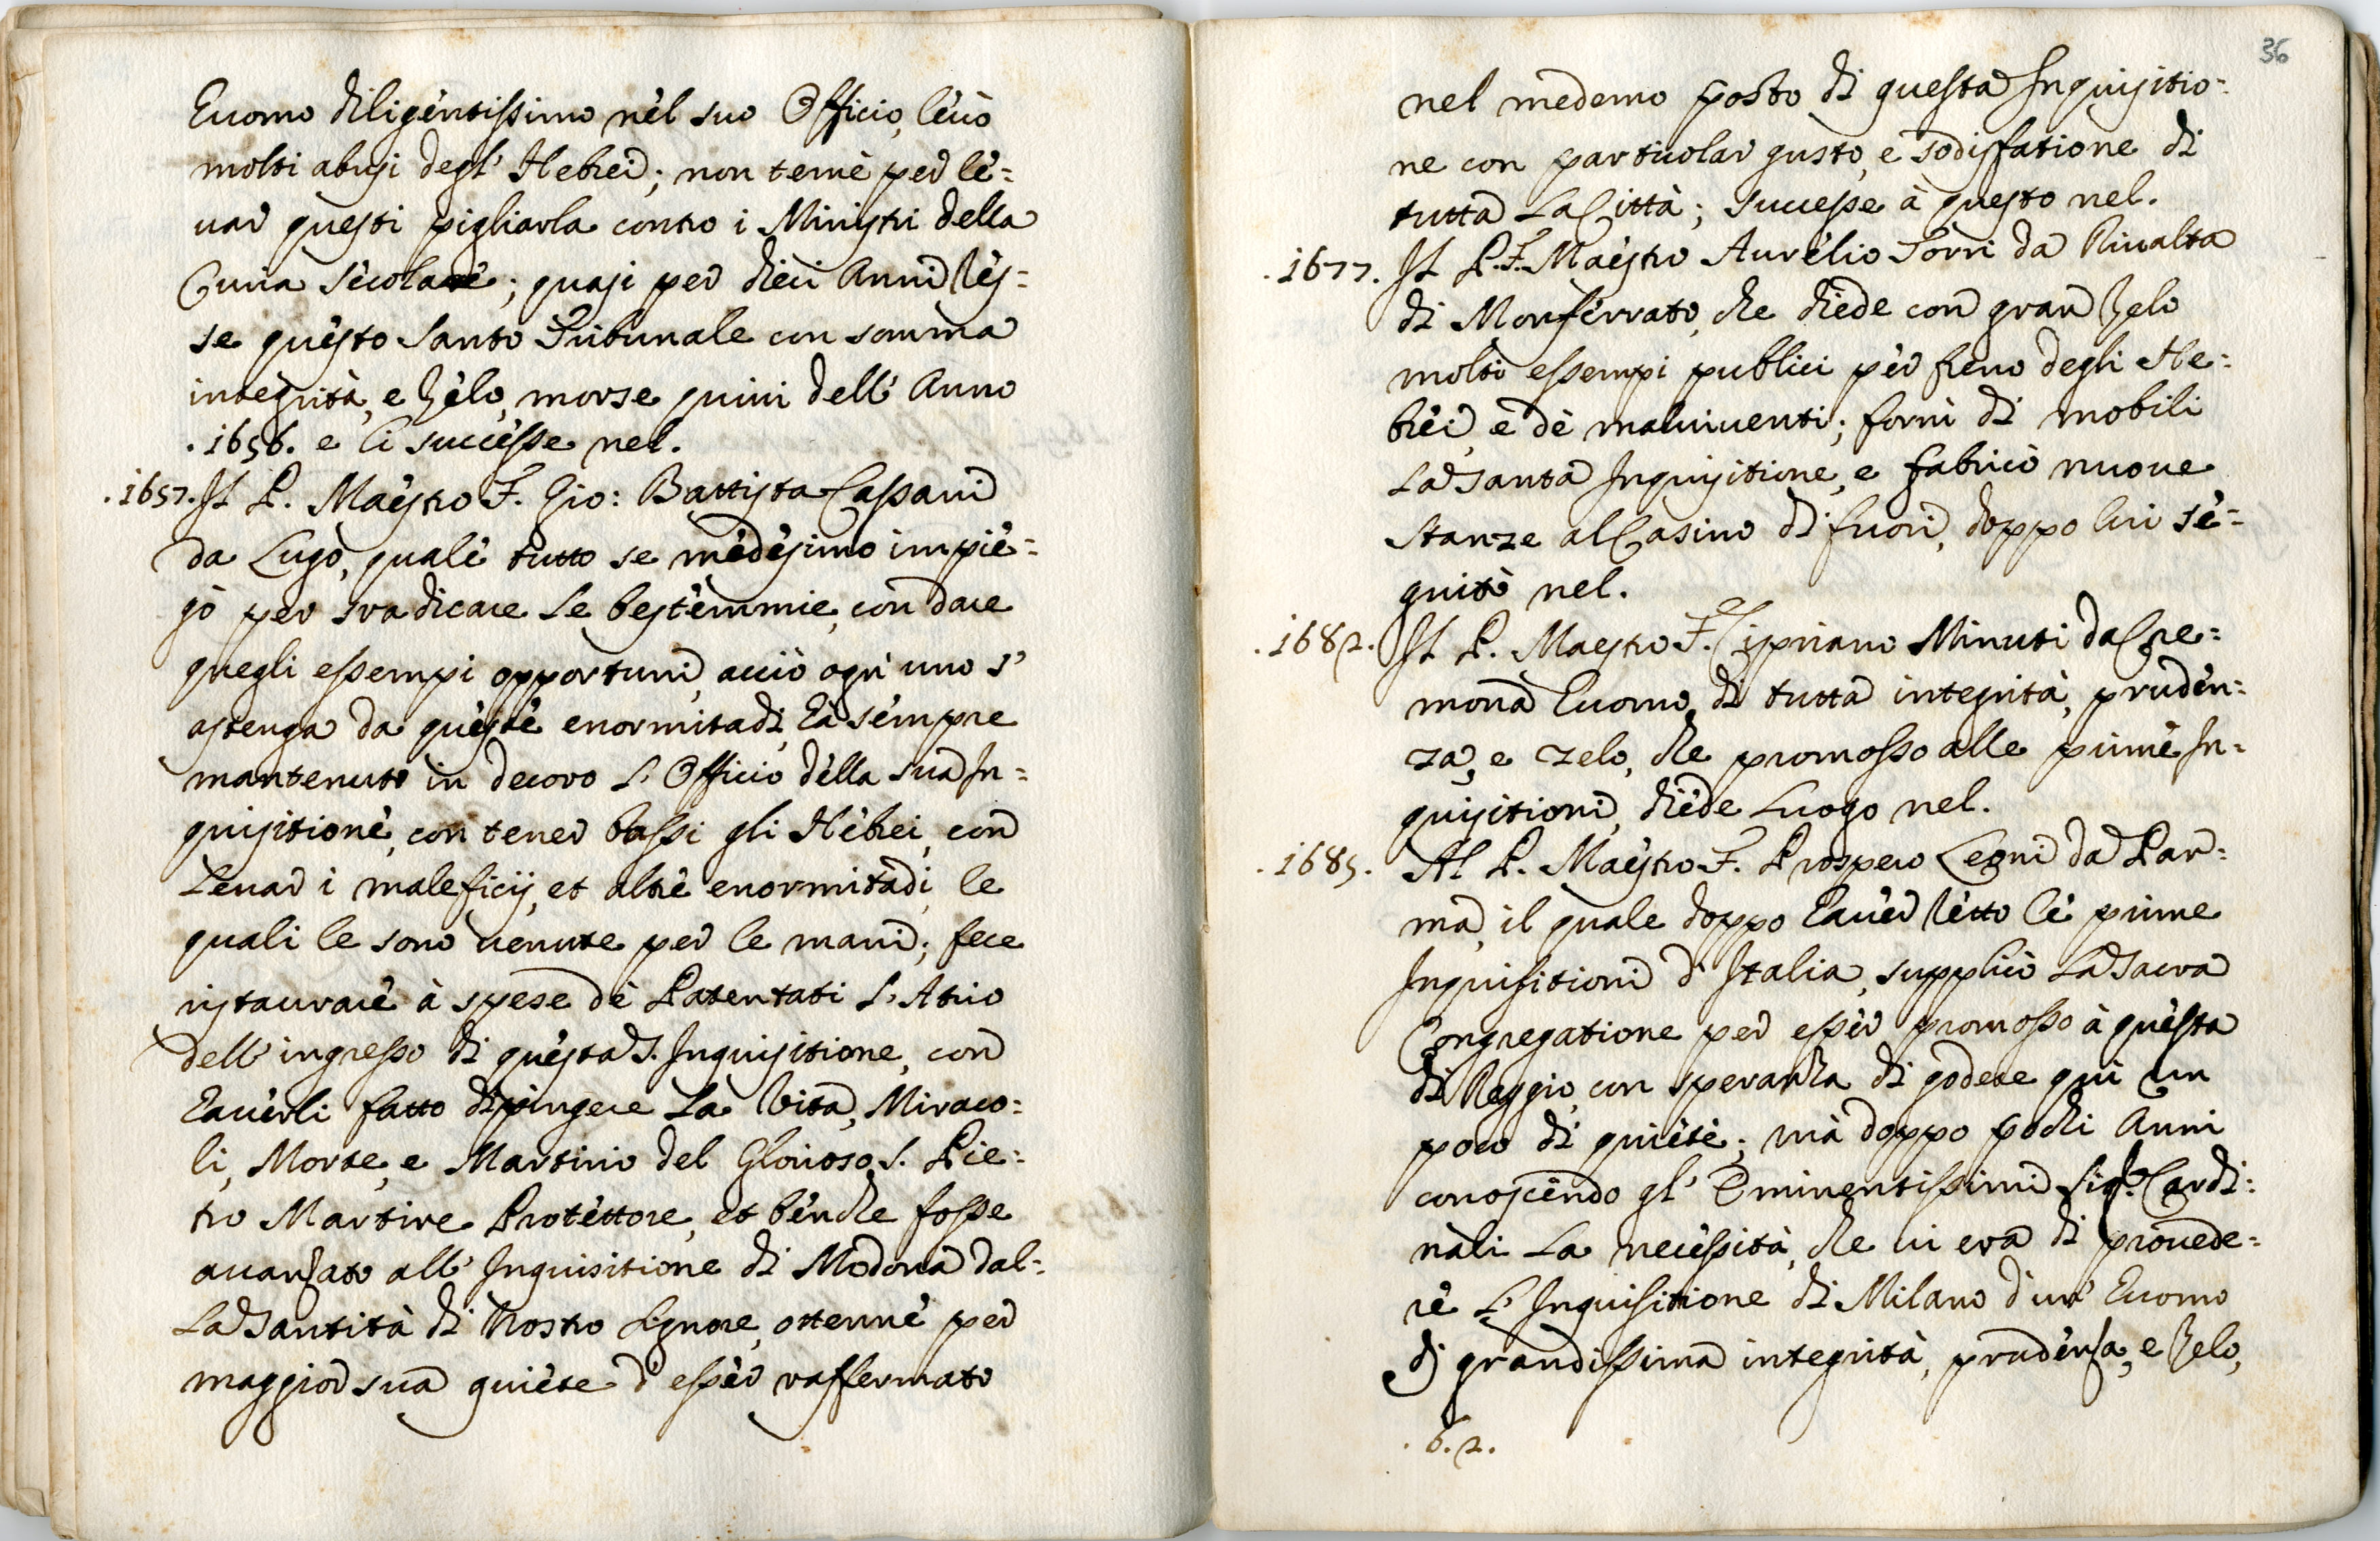 Huomo diligentissimo nel suo Officio, leuò
molti abusi degl' Hebrei; non temè per le=
uar questi pigliarla contro i Ministri della
Curia secolare; quasi per dieci Anni res=
se questo Santo Tribunale con somma
integrità, e zelo, morse quiui dell' Anno
.1656. e li successe nel.
.1657. Il P. Maestro F. Gio: Battista Cassani
da Lugo, quale tutto se medesimo impie=
gò per sradicare le bestemmie, con dare
quegli essempi opportuni, acciò ogn' uno s'
astenga da queste enormitadi, hà sempre
mantenuto in decoro l' Officio della sua In=
quisitione, con tener bassi gli Hebrei, con
leuar i maleficij, et altre enormitadi, le
quali le sono uenute per le mani; fece
ristaurare à spese dè Patentati l' Atrio
dell' ingresso di questa S. Inquisitione, con
hauerli fatto dipingere la Vita, Miraco=
li, Morte, e Martirio del Glorioso S. Pie=
tro Martire Protettore, et benche fosse
auanzato all' Inquisitione di Modona dal=
la Santità di Nostro Signore, ottenne per
maggior sua quiete d' esser raffermato
36
nel medemo posto di questa Inquisitio=
ne con particolar gusto, e sodisfatione di
tutta la Città; successe à questo nel.
.1677. Il P. F. Maestro Aurelio Torri da Riualta
di Monferrato, che diede con gran zelo
molti essempi publici per freno degli He=
brei, e dè maluiuenti; fornì di mobili
la Santa Inquisitione, e fabricò nuoue
stanze al Casino di fuori, doppo lui se=
guitò nel.
.1682. Il P. Maestro F. Cipriano Minuti da Cre=
mona Huomo di tutta integrità, pruden=
za, e zelo, che promosso alle prime In=
quisitioni, diede luogo nel.
.1685. Al P. Maestro F. Prospero Leoni da Par=
ma, il quale doppo hauer retto le prime
Inquisitioni d' Italia, supplicò la Sacra
Congregatione per esser promosso à questa
di Reggio, con speranza di godere qui un
poco di quiete; mà doppo pochi Anni
conoscendo gl' Eminentissimi Sig.ri Cardi=
nali la necessità, che ui era di prouede=
re l' Inquisitione di Milano d' un' Huomo
di grandissima integrità, prudenza, e zelo,
.6.2.